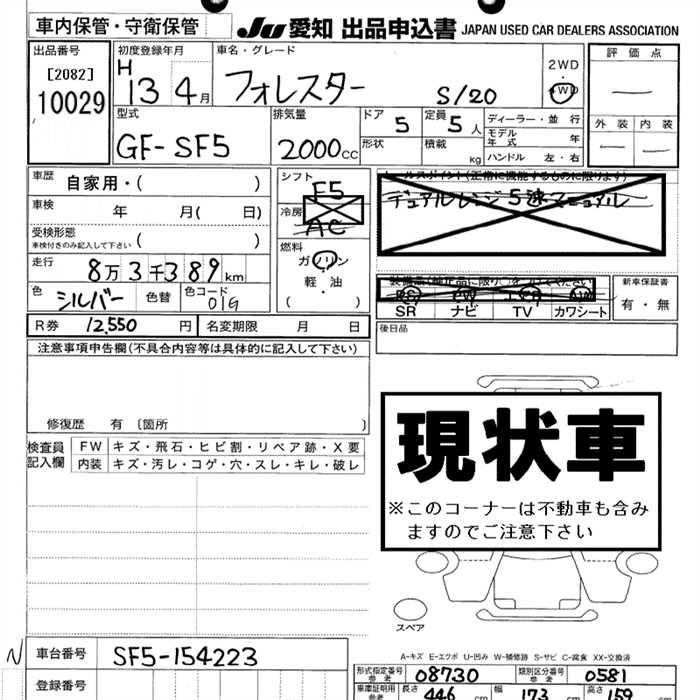 車内保管・守衛保管 JU 愛知 出品申込書 JAPAN USED CAR DEALERS ASSOCIATION
出品番号 初度登録年月 車名・グレード 2WD・4WD 評価点
[2082] H 13 4月 フォレスター S/20 —
10029
型式 排気量 ドア 定員 ディーラー・並行 外装 内装
GF-SF5 2000cc 5 5人 モデル年式 年 — —
形状 積載 kg ハンドル 左・右
車歴 自家用・( ) シフト F5 セールスポイント(正常に機能するものに限ります)
デュアルレンジ5速マニュアル
車検 年 月( 日) 冷房 AC
受検形態 ( )
車検付きのみ記入して下さい
燃料
走行 8万3千389km ガソリン
軽・油
( )
色 シルバー 色替 色コード 01G
新車保証書
SR ナビ TV カワシート 有・無
R券 12,550円 名変期限 月 日 後日品
注意事項申告欄(不具合内容等は具体的に記入して下さい)
修復歴 有 〔箇所 〕
検査員記入欄 FW キズ・飛石・ヒビ割・リペア跡・X要
内装 キズ・汚レ・コゲ・穴・スレ・キレ・破レ
現状車
※このコーナーは不動車も含み
ますのでご注意下さい
スペア
A-キズ E-エクボ U-凹み W-補修跡 S-サビ C-腐食 XX-交換済
N 車台番号 SF5-154223 形式指定番号 参考 08730 類別区分番号 参考 0581
登録番号 車庫証明用 参考 長さ 446 cm 幅 173 cm 高さ 159 cm